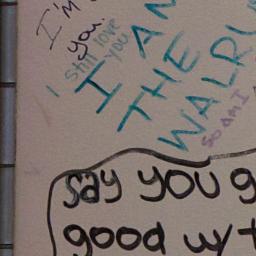 I'm
you.
I still love
you
I AM
THE
WALRU
SO AM I
say you g
good w/ t